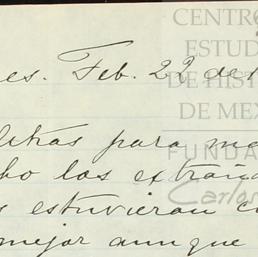 CENTRO
ESTUD
DE HISTO
DE MÉX
FUNDA
Carlos
es. Feb. 22 de 1
letras para ma
bo las extrañ
s estuvieran c
mejor aunque